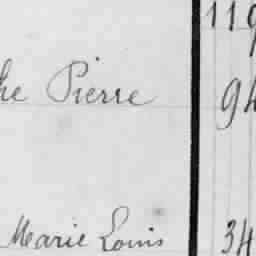 119
he Pierre 94
Marie Louis 34